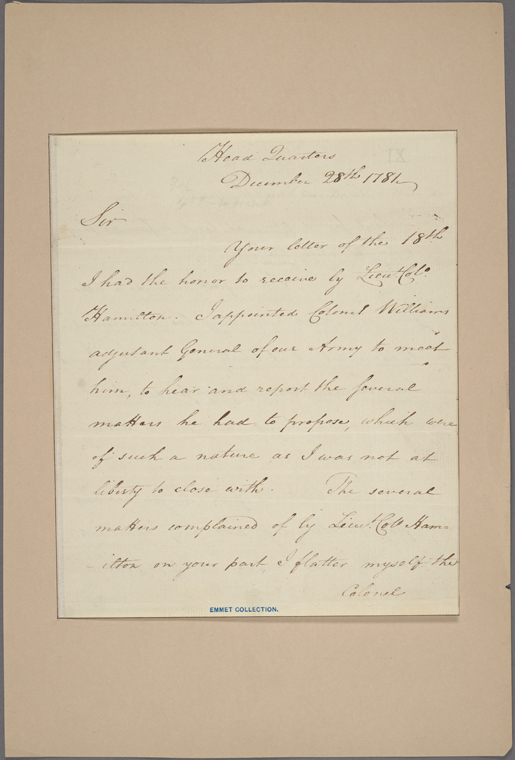 Head Quarters
December 28th 1781
Sir
Your letter of the 18th
I had the honor to receive by Lieut. Colo.
Hamilton. I appointed Colonel Williams
adjutant General of our Army to meet
him, to hear and report the several
matters he had to propose, which were
of such a nature as I was not at
liberty to close with. The several
matters complained of by Lieut. Coll Ham-
ilton on your part I flatter myself the
Colonel
EMMET COLLECTION.